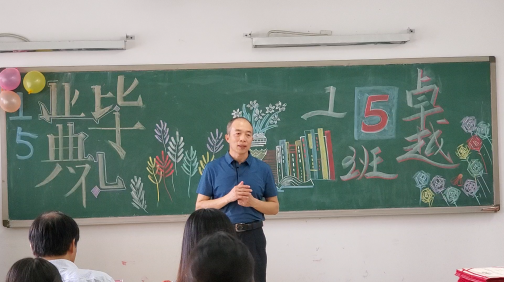 15
毕业
典礼
15班
卓越